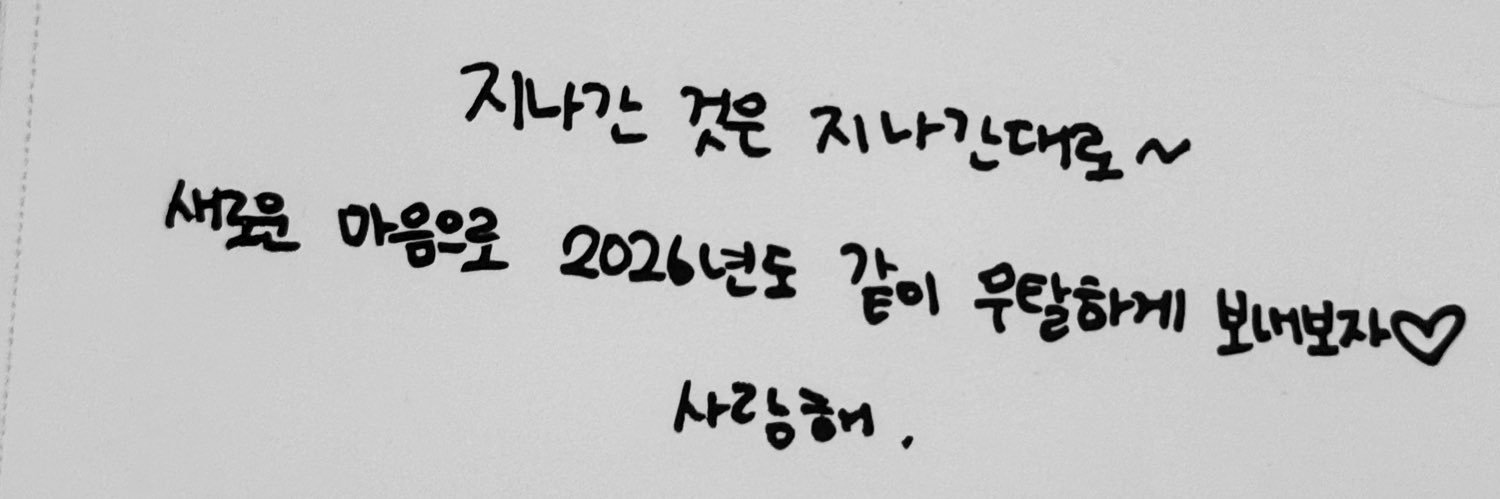 지나간 것은 지나간대로~
새로운 마음으로 2026년도 같이 무탈하게 보내보자♡
사랑해.